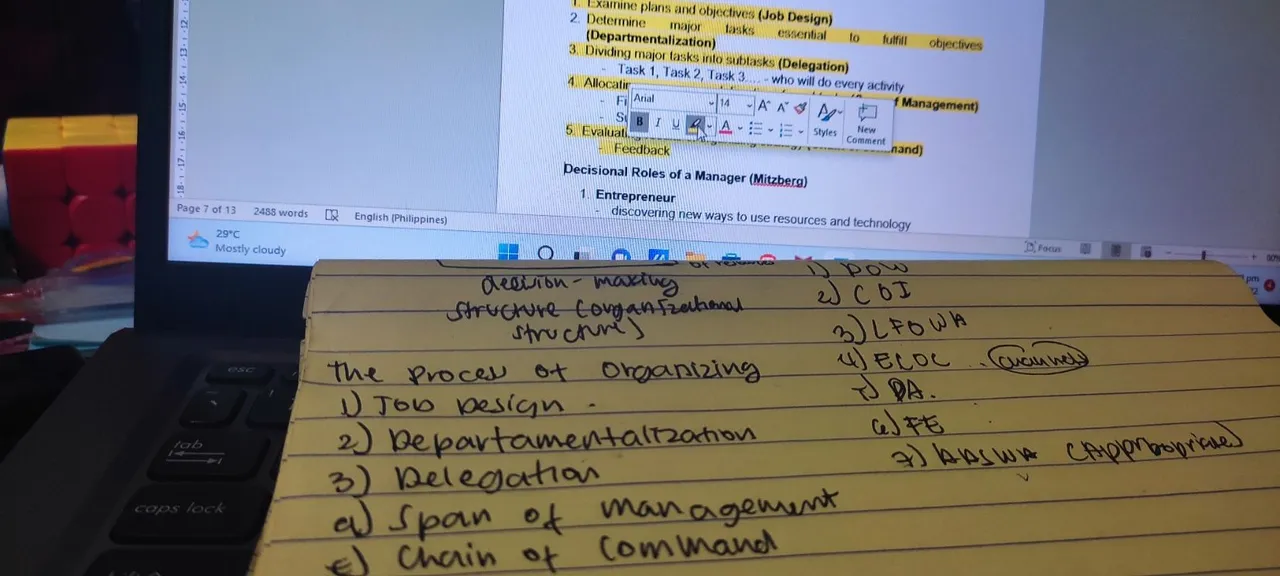 1. Examine plans and objectives (Job Design)
2. Determine major tasks essential to fulfill objectives
(Departmentalization)
3. Dividing major tasks into subtasks (Delegation)
- Task 1, Task 2, Task 3.... - who will do every activity
4. Allocatin
f Management)
- Fi
- Su
5. Evaluati
and)
- Feedback
Arial
14
B I U
Styles
New
Comment
Decisional Roles of a Manager (Mitzberg)
1. Entrepreneur
- discovering new ways to use resources and technology
Page 7 of 13 2488 words English (Philippines)
Focus
90%
29°C
Mostly cloudy
pm
4
esc
tab
caps lock
decision-making
structure (organizational
structure)
The process of organizing
1) Job Design.
2) Departamentalization
3) Delegation
a) Span of management
E) Chain of command
1) POW
2) CDI
3) LFOWA
4) ECOC . (channel)
5) DA.
6) FE
7) AASWA (Appropriate)